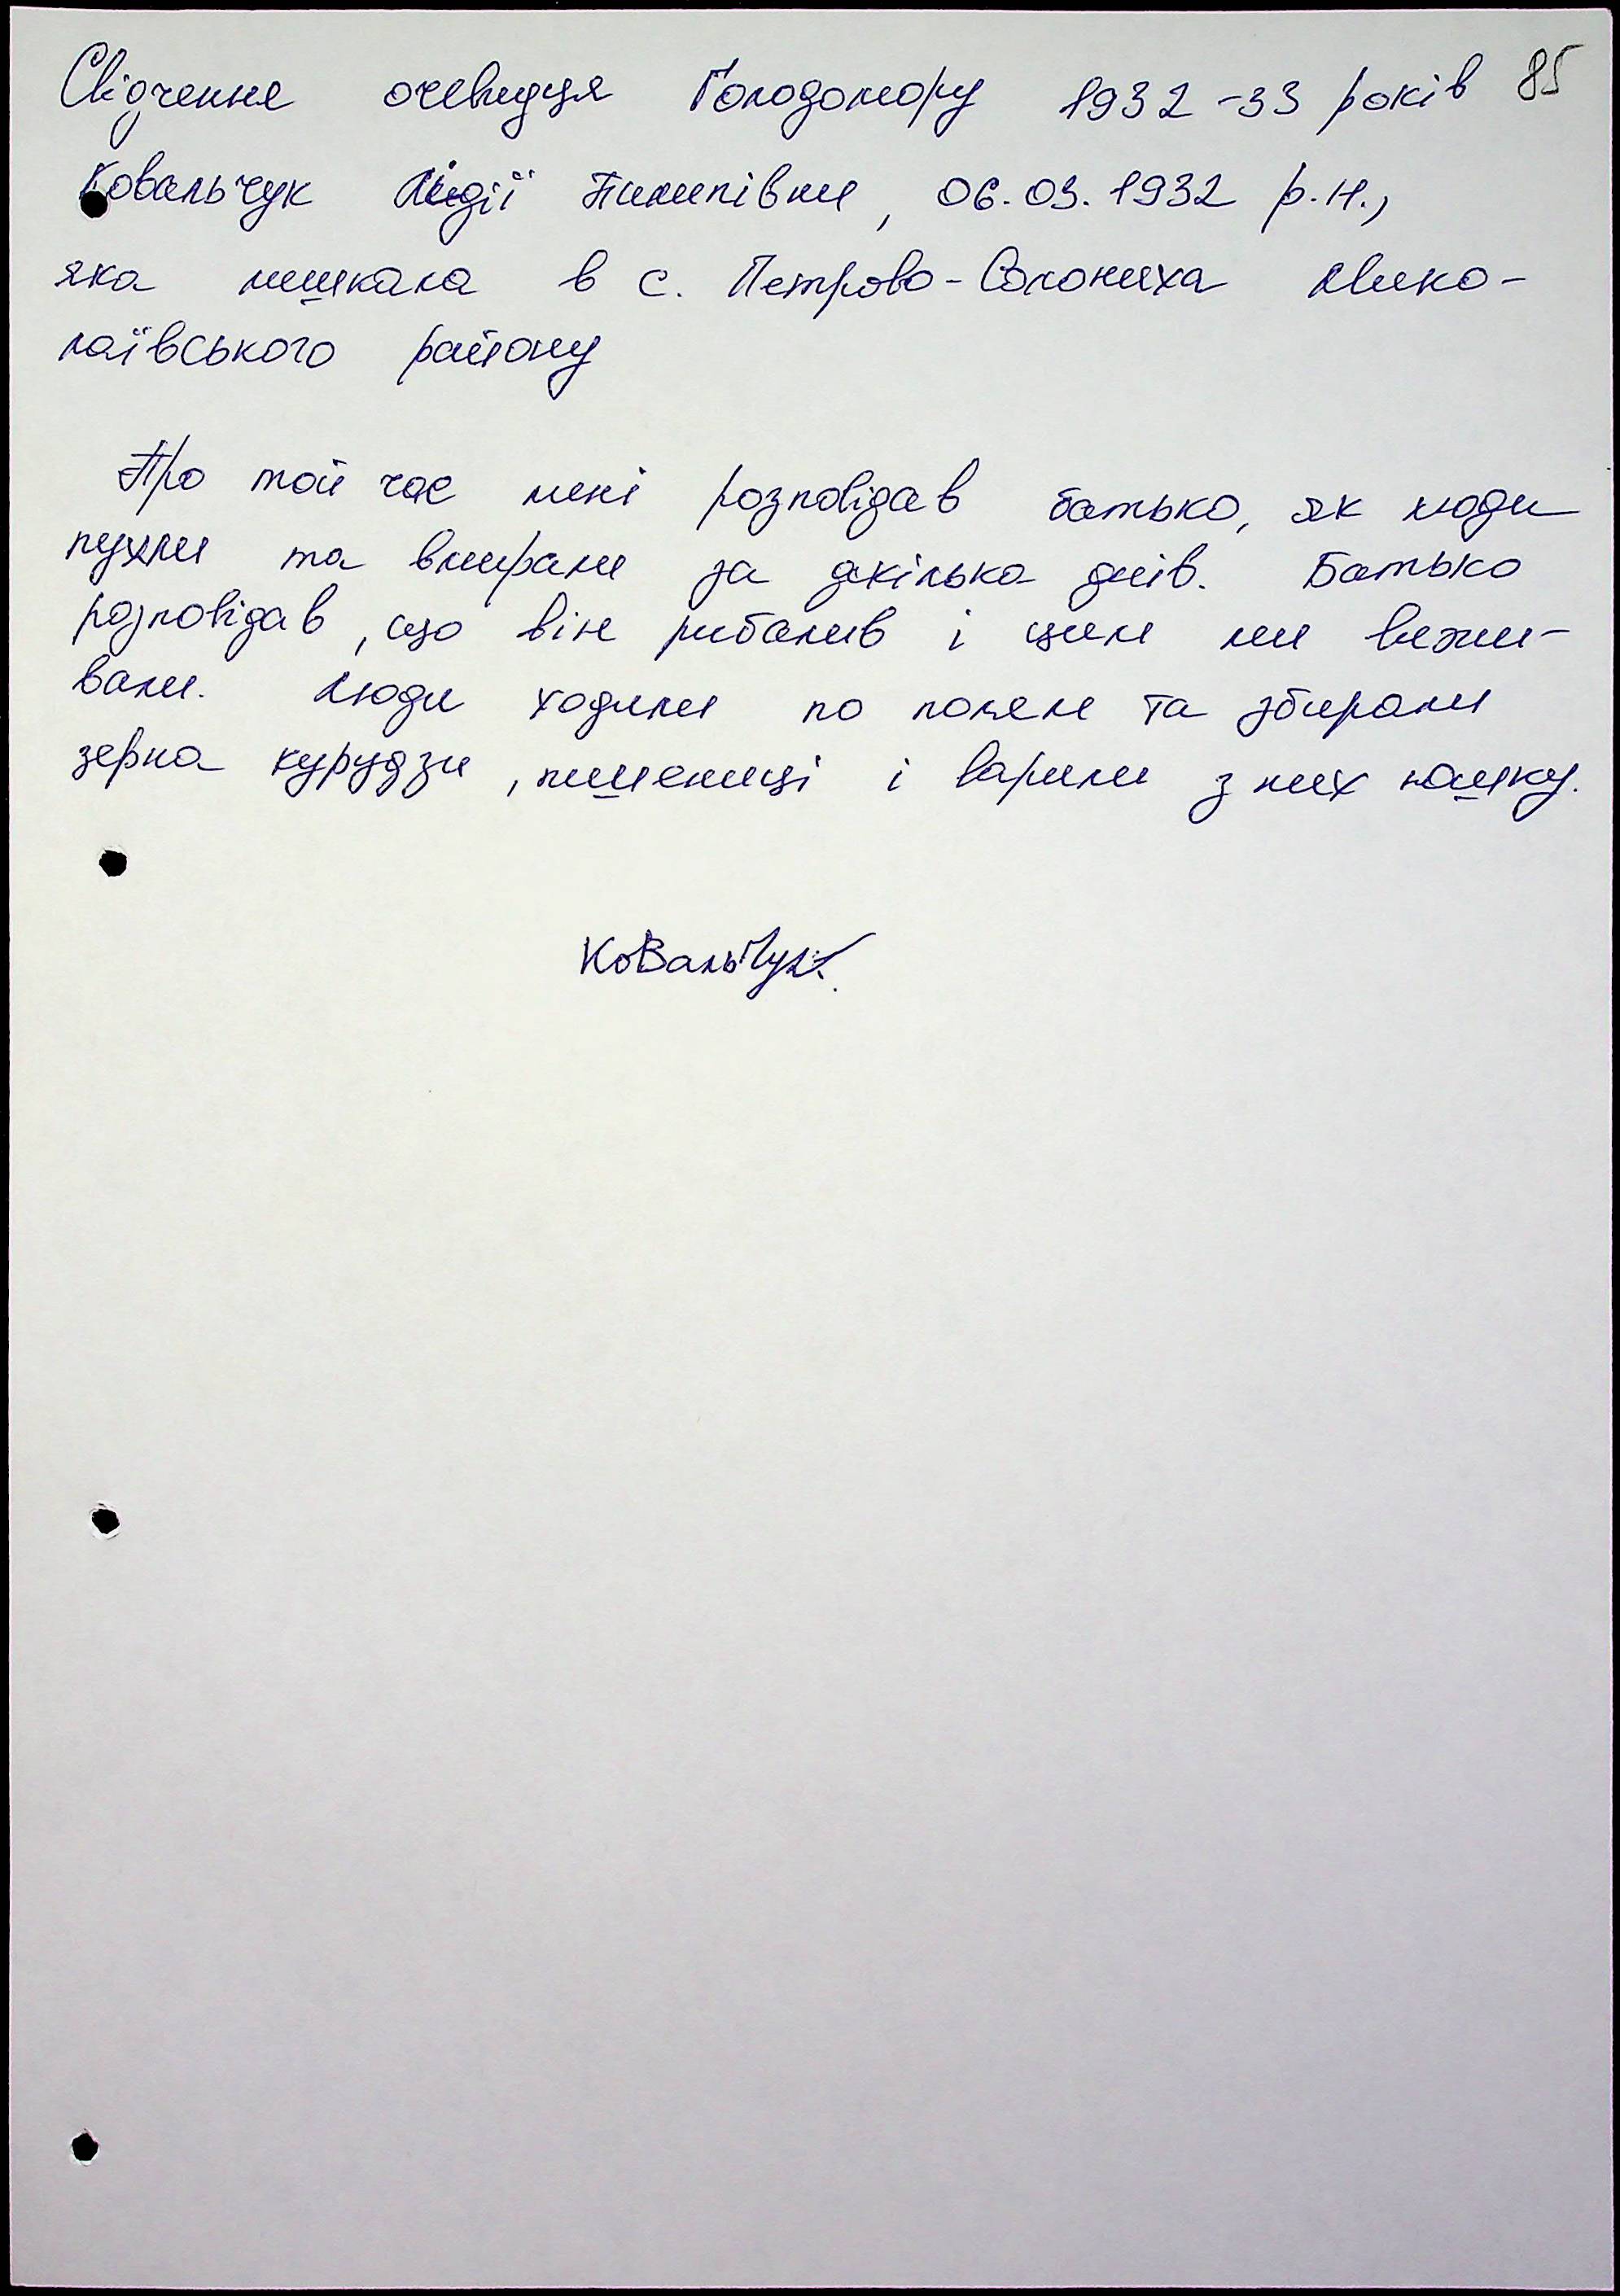 Свідчення очевидця Голодомору 1932-33 років 85
Ковальчук Лідії Пилипівни, 06.03.1932 р.н.,
яка мешкала в с. Петрово-Солониха Мико-
лаївського району
Про той час мені розповідав батько, як люди
пухли та вмирали за декілька днів. Батько
розповідав, що він рибалив і цим ми вижи-
вали. Люди ходили по полям та збирали
зерна курудзи, пшениці і варили з них юшку.
Ковальчук.